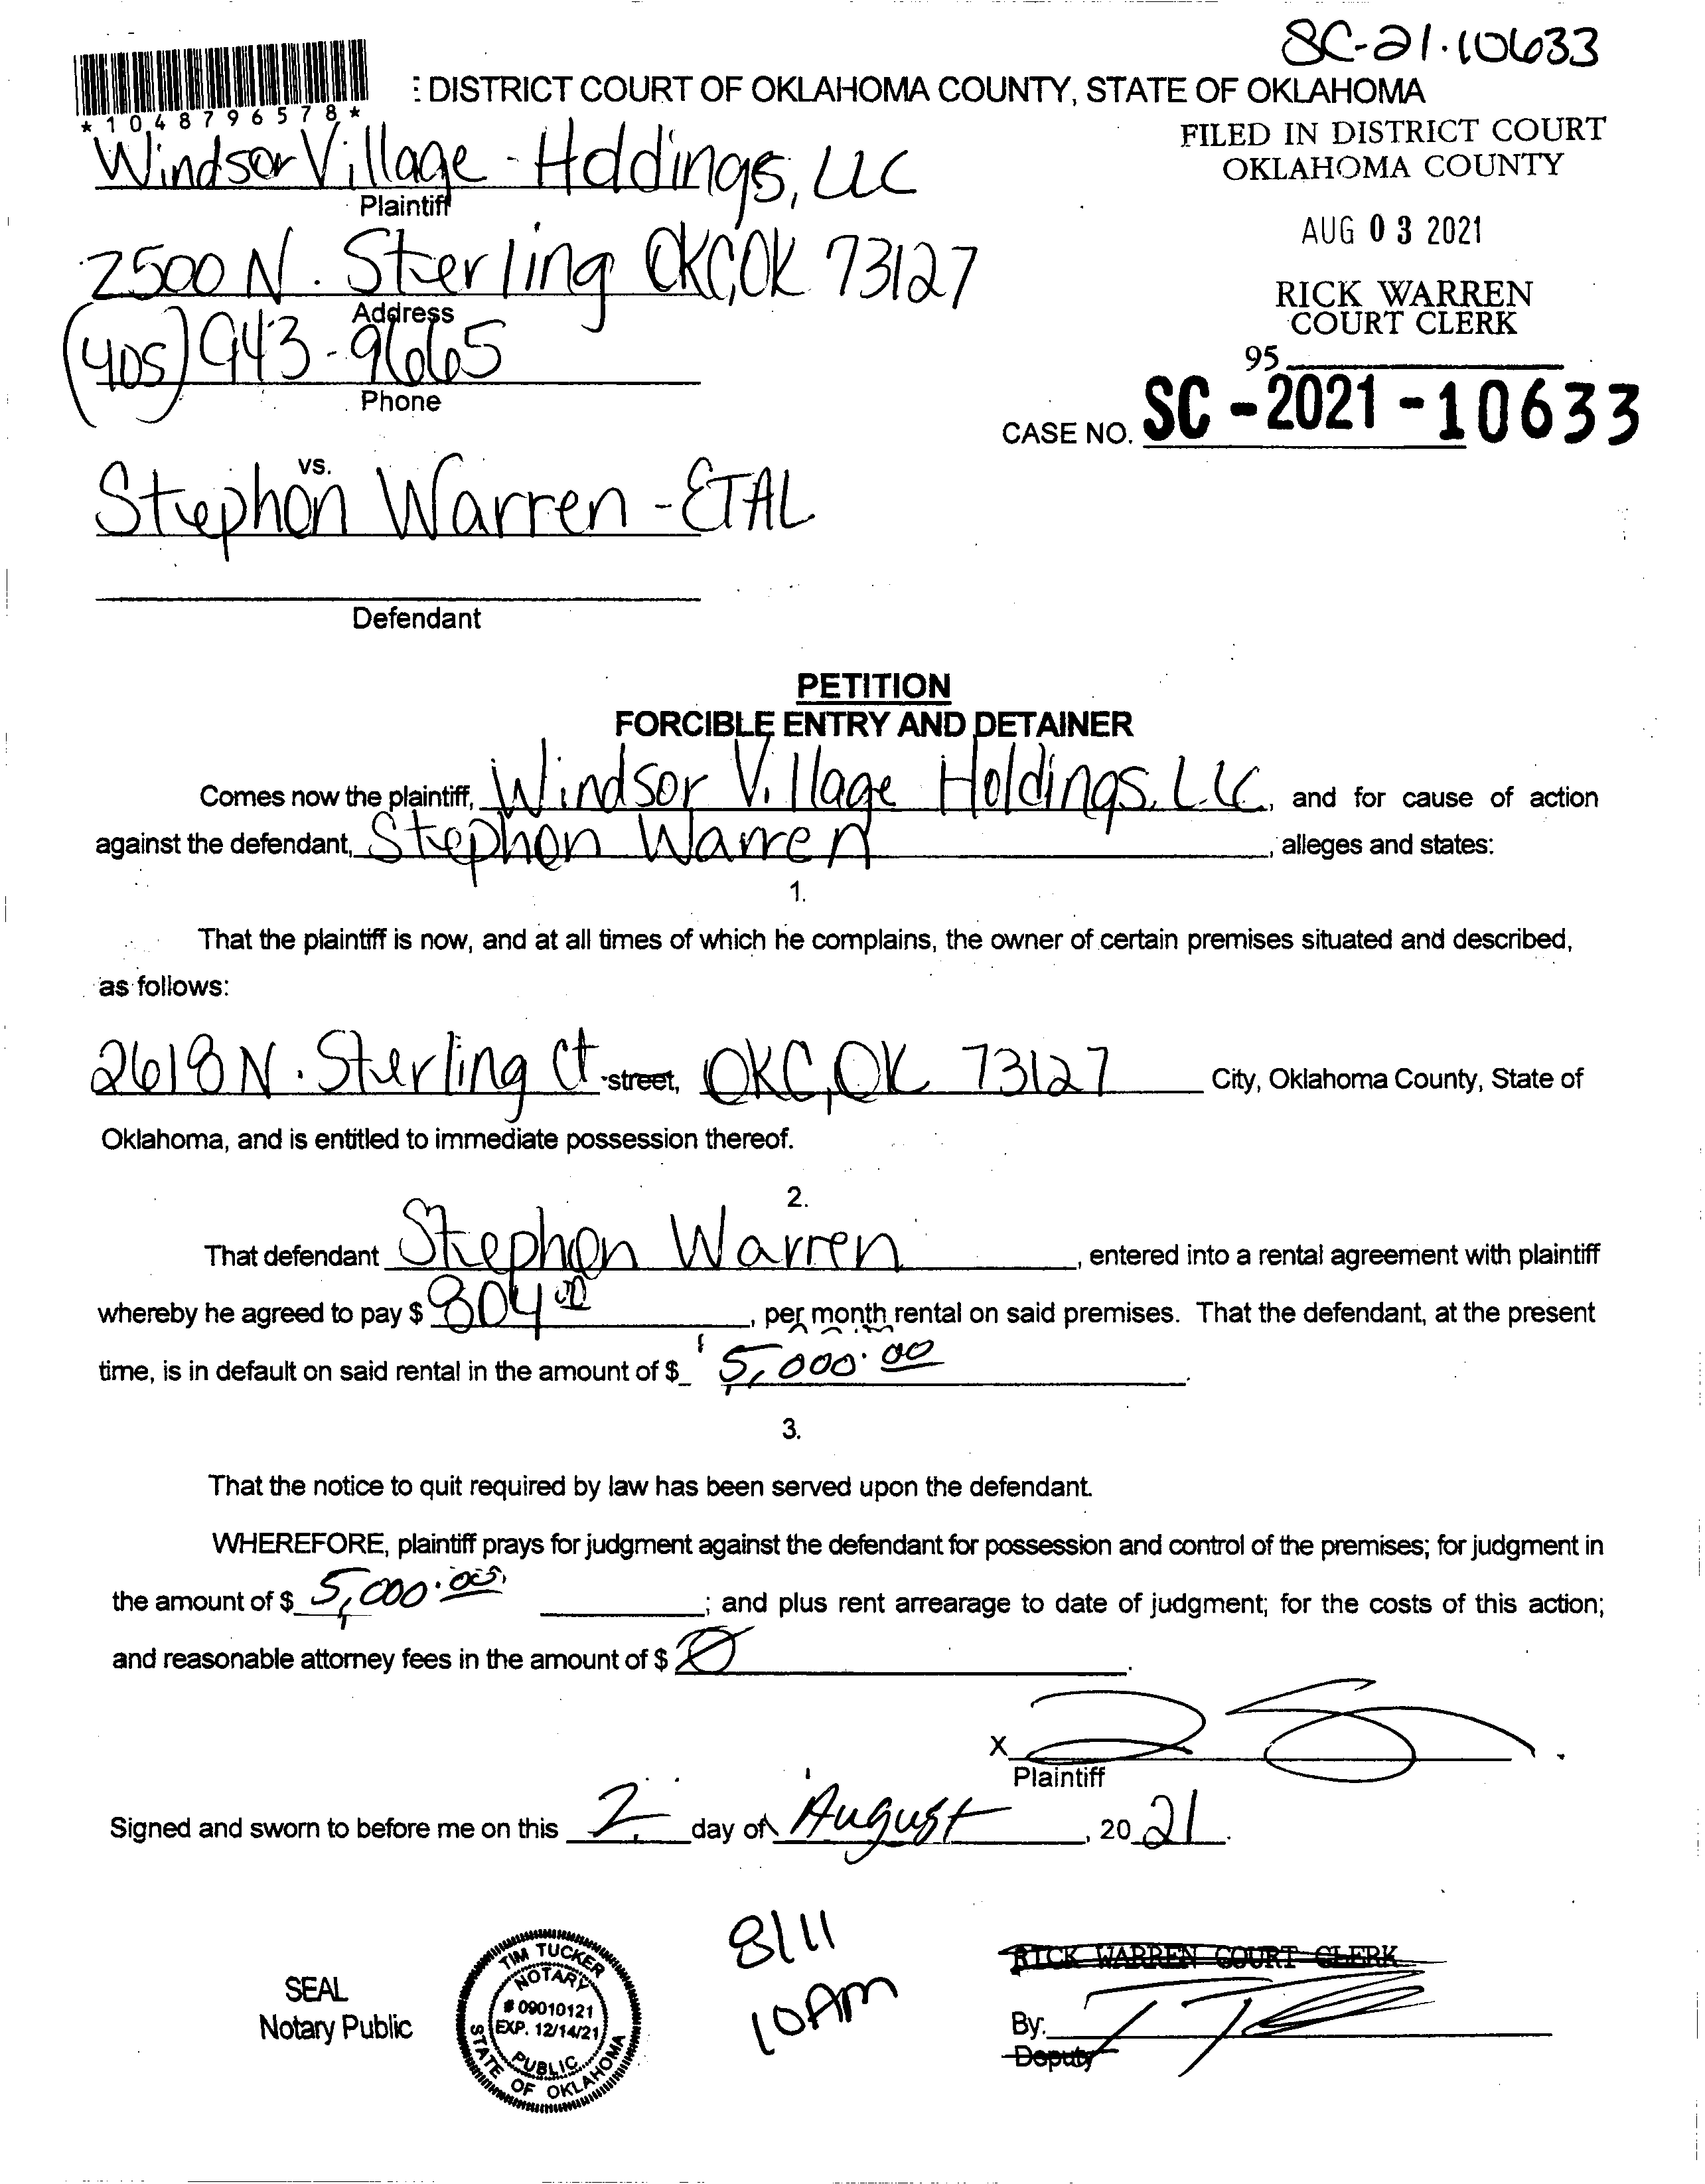 SC-21-10633
* 1 0 4 8 7 9 6 5 7 8 *
: DISTRICT COURT OF OKLAHOMA COUNTY, STATE OF OKLAHOMA
FILED IN DISTRICT COURT
OKLAHOMA COUNTY
AUG 03 2021
RICK WARREN
COURT CLERK
95
CASE NO. SC-2021-10633
Windsor Village - Holdings, LLC
Plaintiff
2500 N. Sterling OKC, OK 73127
Address
(405) 943-9665
Phone
vs.
Stephon Warren - ETAL
Defendant
PETITION
FORCIBLE ENTRY AND DETAINER
Comes now the plaintiff, Windsor Village Holdings, LLC, and for cause of action
against the defendant, Stephon Warren, alleges and states:
1.
That the plaintiff is now, and at all times of which he complains, the owner of certain premises situated and described,
as follows:
2618 N. Sterling Ct street, OKC, OK 73127 City, Oklahoma County, State of
Oklahoma, and is entitled to immediate possession thereof.
2.
That defendant Stephon Warren, entered into a rental agreement with plaintiff
whereby he agreed to pay $ 804 00, per month rental on said premises. That the defendant, at the present
time, is in default on said rental in the amount of $ 5,000.00.
3.
That the notice to quit required by law has been served upon the defendant.
WHEREFORE, plaintiff prays for judgment against the defendant for possession and control of the premises; for judgment in
the amount of $ 5,000.00; and plus rent arrearage to date of judgment; for the costs of this action;
and reasonable attorney fees in the amount of $ 0.
X
Plaintiff
Signed and sworn to before me on this 2 day of August, 2021.
8/11
10AM
SEAL
Notary Public
TIM TUCKER
NOTARY
# 09010121
EXP. 12/14/21
PUBLIC
STATE OF OKLAHOMA
RICK WARREN COURT CLERK
By:
Deputy